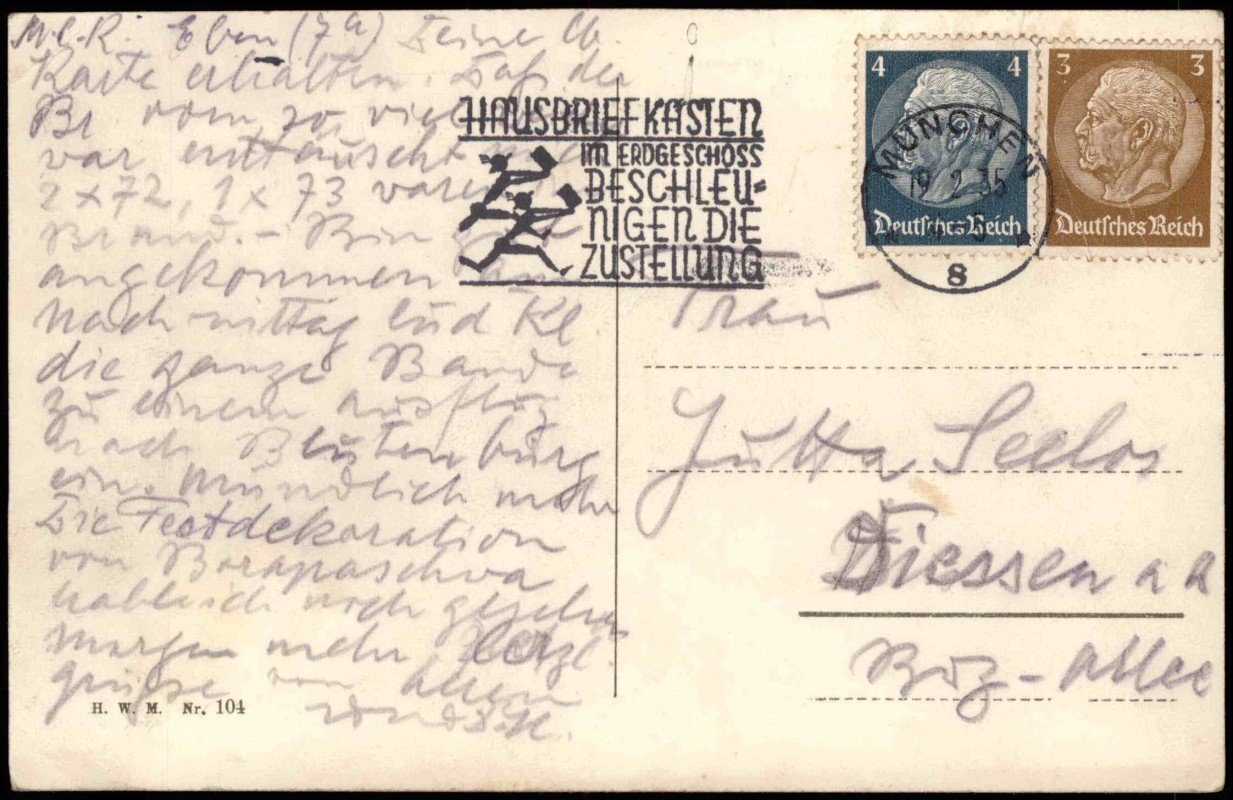 M.L.R. Eben (7h) Deine lb.
Karte erhalten. Daß der
Br vom 20. viel
war enttäuscht
2 x 72, 1 x 73 waren
Brand. - Bin gut
angekommen
Nachmittag lud Kl
die ganze Bande
zu einem Ausflug
nach Blutenburg
ein. Mündlich mehr
Die Festdekoration
von
hable ich noch gesehen
morgen mehr Herzl.
Grüsse von allen
H. W. M. Nr. 104
HAUSBRIEFKASTEN
IM ERDGESCHOSS
BESCHLEU-
NIGEN DIE
ZUSTELLUNG
4 4
Deutsches Reich
3 3
Deutsches Reich
MÜNCHEN
19 2 35
5
8
Frau
Jutta Seelos
Diessen a A
Buz-Allee